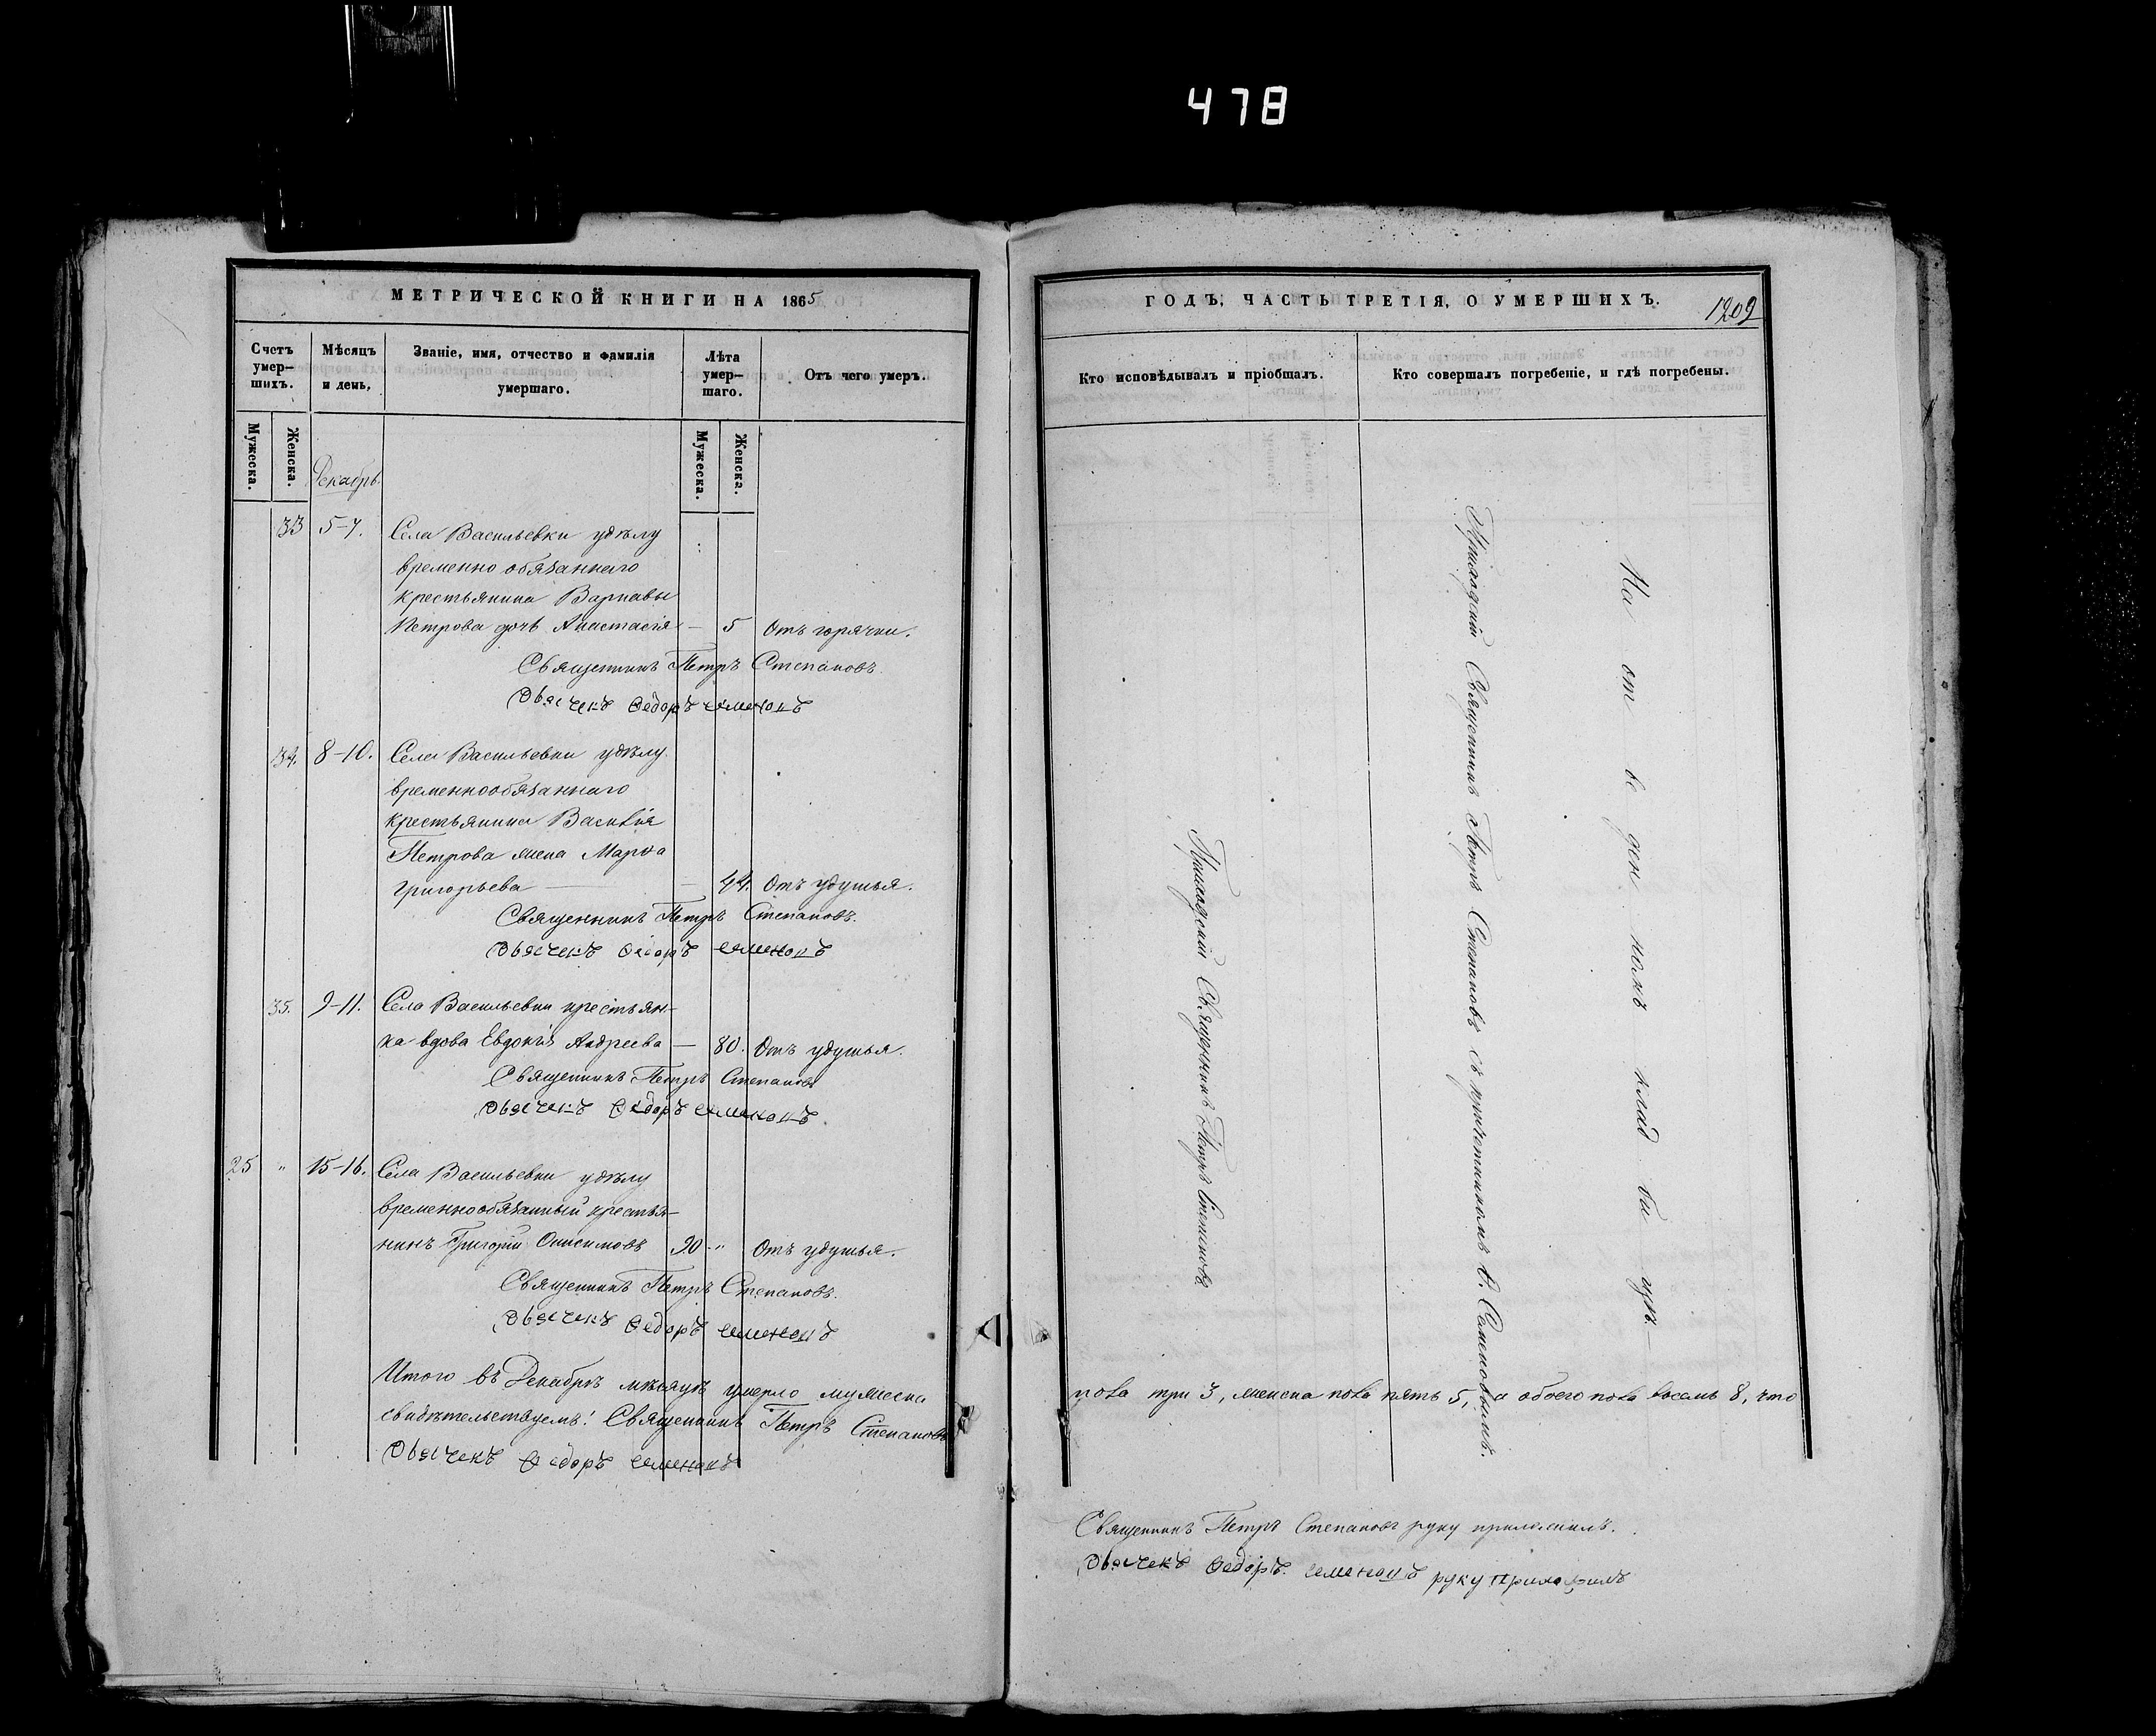 478
МЕТРИЧЕСКОЙ КНИГИ НА 1865
Счетъ умер-шихъ.
Мѣсяцъ и день.
Званіе, имя, отчество и фамилія умершаго.
Лѣта умер-шаго.
Отъ чего умеръ.
Мужеска.
Женска.
Мужеска.
Женска.
Декабрь.
33 5-7. Села Васильевки удѣлу
временно обязаннаго
крестьянина Варнавы
Петрова дочь Анастасія — 5 Отъ горячки.
Священникъ Петръ Степановъ
Дьячекъ Ѳедоръ Семеновъ
34. 8-10. Села Васильевки удѣлу
временнообязаннаго
крестьянина Василія
Петрова жена Марѳа
Григорьева — 44. Отъ удушья.
Священникъ Петръ Степановъ.
Дьячекъ Ѳедоръ Семеновъ
35. 9-11. Села Васильевки крестьян-
ка вдова Евдокія Андреева — 80. Отъ удушья.
Священникъ Петръ Степановъ
Дьячекъ Ѳедоръ Семеновъ
25 " 15-16. Села Васильевки удѣлу
временнообязанный крестья-
нинъ Григорій Онисимовъ 90 " Отъ удушья.
Священникъ Петръ Степановъ.
Дьячекъ Ѳедоръ Семеновъ
Итого въ Декабрѣ мѣсяцѣ умерло мужеска
свидѣтельствуемъ: Священникъ Петръ Степановъ
Дьячекъ Ѳедоръ Семеновъ
ГОДЪ, ЧАСТЬ ТРЕТІЯ, О УМЕРШИХЪ.
1209
Кто исповѣдывалъ и пріобщалъ.
Кто совершалъ погребеніе, и гдѣ погребены.
Приходскій Священникъ Петръ Степановъ
Приходскій Священникъ Петръ Степановъ съ причетникомъ Ѳ. Семеновымъ.
На от ве ден номъ клад би щѣ.
пола три 3, женска пола пять 5, а обоего пола восемь 8, что
Священникъ Петръ Степановъ руку приложилъ.
Дьячекъ Ѳедоръ Семеновъ руку приложилъ